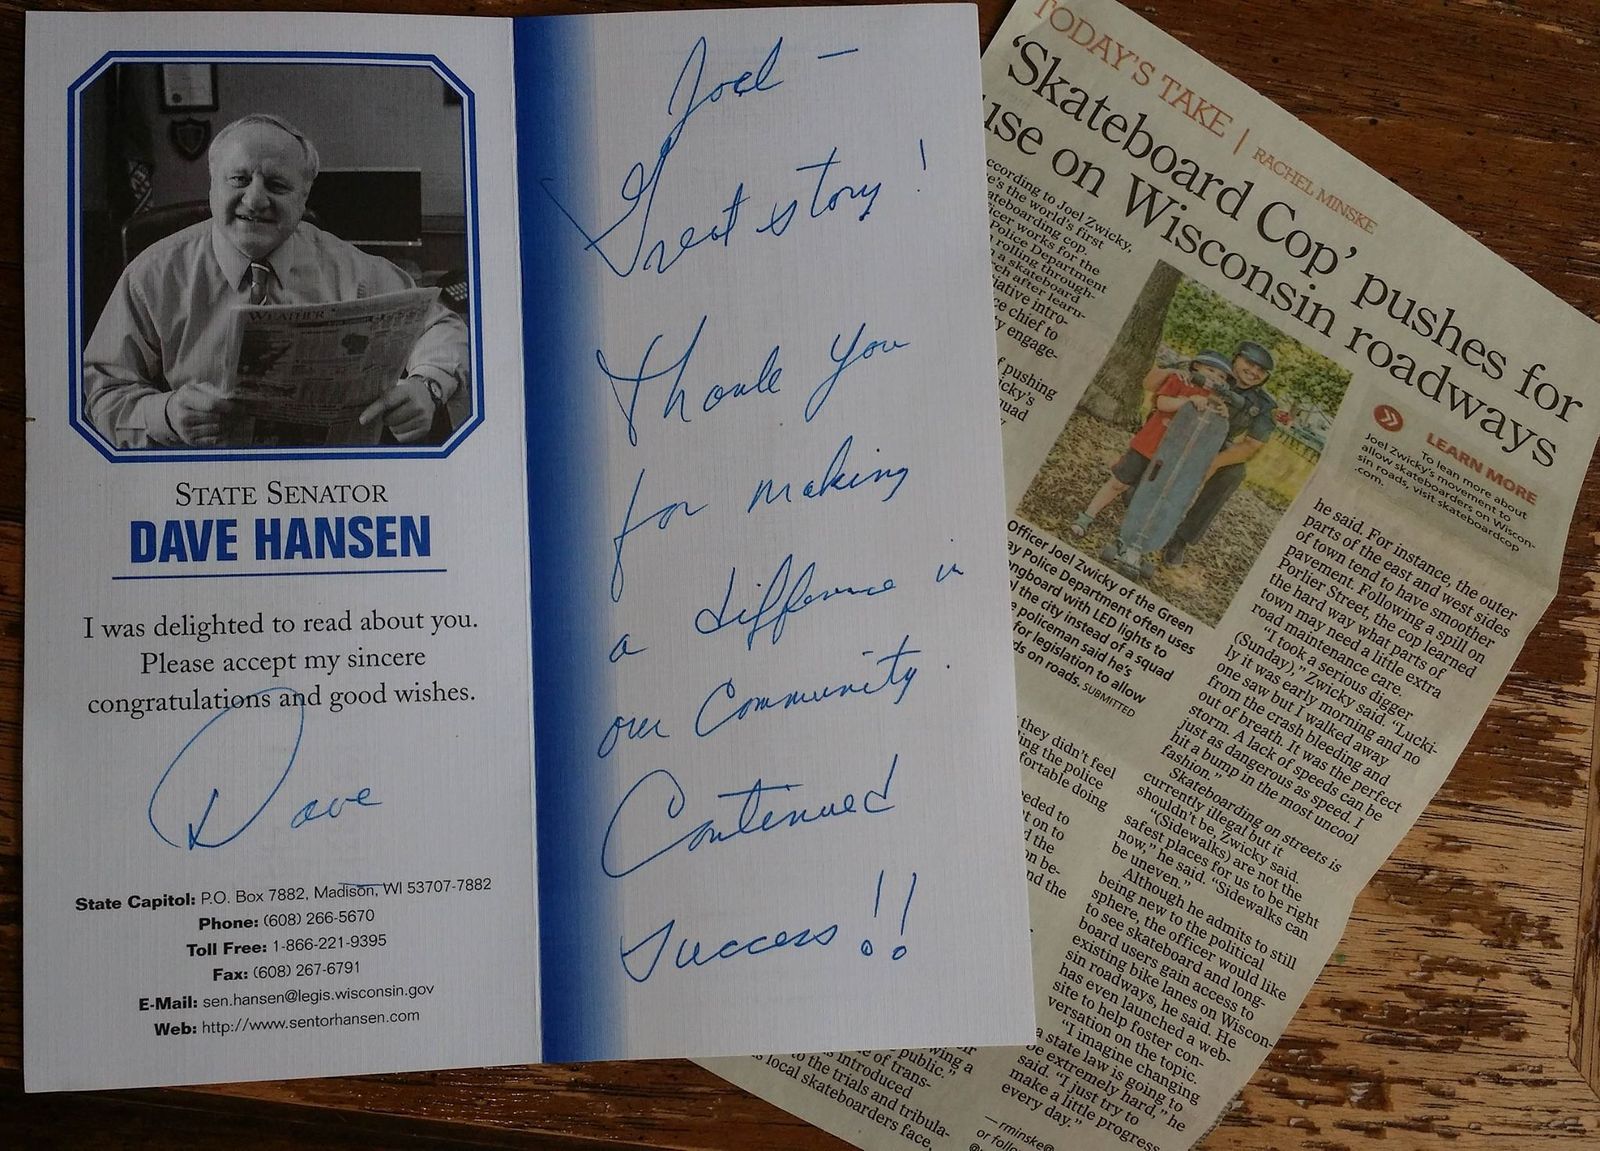 WEATHER
STATE SENATOR
DAVE HANSEN
I was delighted to read about you.
Please accept my sincere
congratulations and good wishes.
Dave
State Capitol: P.O. Box 7882, Madison, WI 53707-7882
Phone: (608) 266-5670
Toll Free: 1-866-221-9395
Fax: (608) 267-6791
E-Mail: sen.hansen@legis.wisconsin.gov
Web: http://www.sentorhansen.com
Joel –
Great story!
Thank you
for making
a difference in
our Community.
Continued
success!!
TODAY'S TAKE | RACHEL MINSKE
'Skateboard Cop' pushes for
use on Wisconsin roadways
ccording to Joel Zwicky,
e's the world's first
ateboarding cop.
ficer works for the
Police Department
rolling through-
a skateboard
ch after learn-
lative intro-
ce chief to
y engage-
f pushing
icky's
uad
Officer Joel Zwicky of the Green
ay Police Department often uses
ongboard with LED lights to
the city instead of a squad
e policeman said he's
for legislation to allow
ds on roads. SUBMITTED
they didn't feel
ing the police
fortable doing
eded to
t on to
d the
on be-
nd the
wing a
public."
e of trans-
s introduced
to the trials and tribula-
local skateboarders face,
LEARN MORE
To lean more about
Joel Zwicky's movement to
allow skateboarders on Wiscon-
sin roads, visit skateboardcop
.com.
he said. For instance, the outer
parts of the east and west sides
of town tend to have smoother
pavement. Following a spill on
Porlier Street, the cop learned
the hard way what parts of
town may need a little extra
road maintenance care.
"I took a serious digger
(Sunday)," Zwicky said. "Lucki-
ly it was early morning and no
one saw but I walked away
from the crash bleeding and
out of breath. It was the perfect
storm. A lack of speeds can be
just as dangerous as speed. I
hit a bump in the most uncool
fashion."
Skateboarding on streets is
currently illegal but it
shouldn't be, Zwicky said.
"(Sidewalks) are not the
safest places for us to be right
now," he said. "Sidewalks can
be uneven."
Although he admits to still
being new to the political
sphere, the officer would like
to see skateboard and long-
board users gain access to
existing bike lanes on Wiscon-
sin roadways, he said. He
has even launched a web-
site to help foster con-
versation on the topic.
"I imagine changing
a state law is going to
be extremely hard," he
said. "I just try to
make a little progress
every day."
— rminske@
or follo